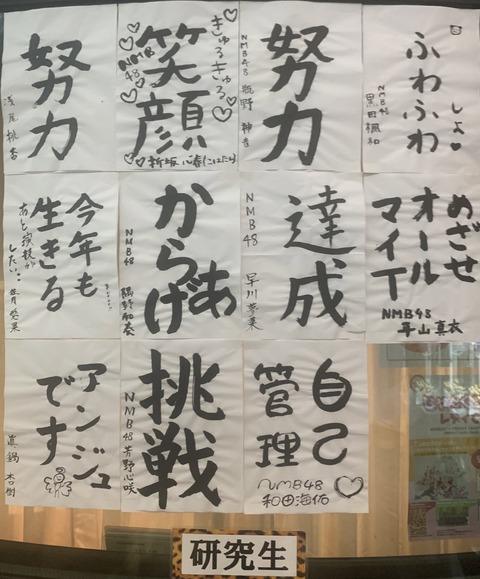 努力
浅尾桃香
きゅるきゅる
笑顔
NMB
48
新坂 心春(こはたん)
努力
NMB48 瓶野 神音
しょ
ふわふわ
NMB48
黒田楓和
今年も
生きる
あと演技が
したい。
からあげ
NMB48
隅野和奏
達成
NMB48
早川夢菜
めざせ
オール
マイT
NMB48
平山真衣
アンジュ
です
眞鍋杏樹
挑戦
NMB48 芳野心咲
自己
管理
NMB48
和田海佑
研究生